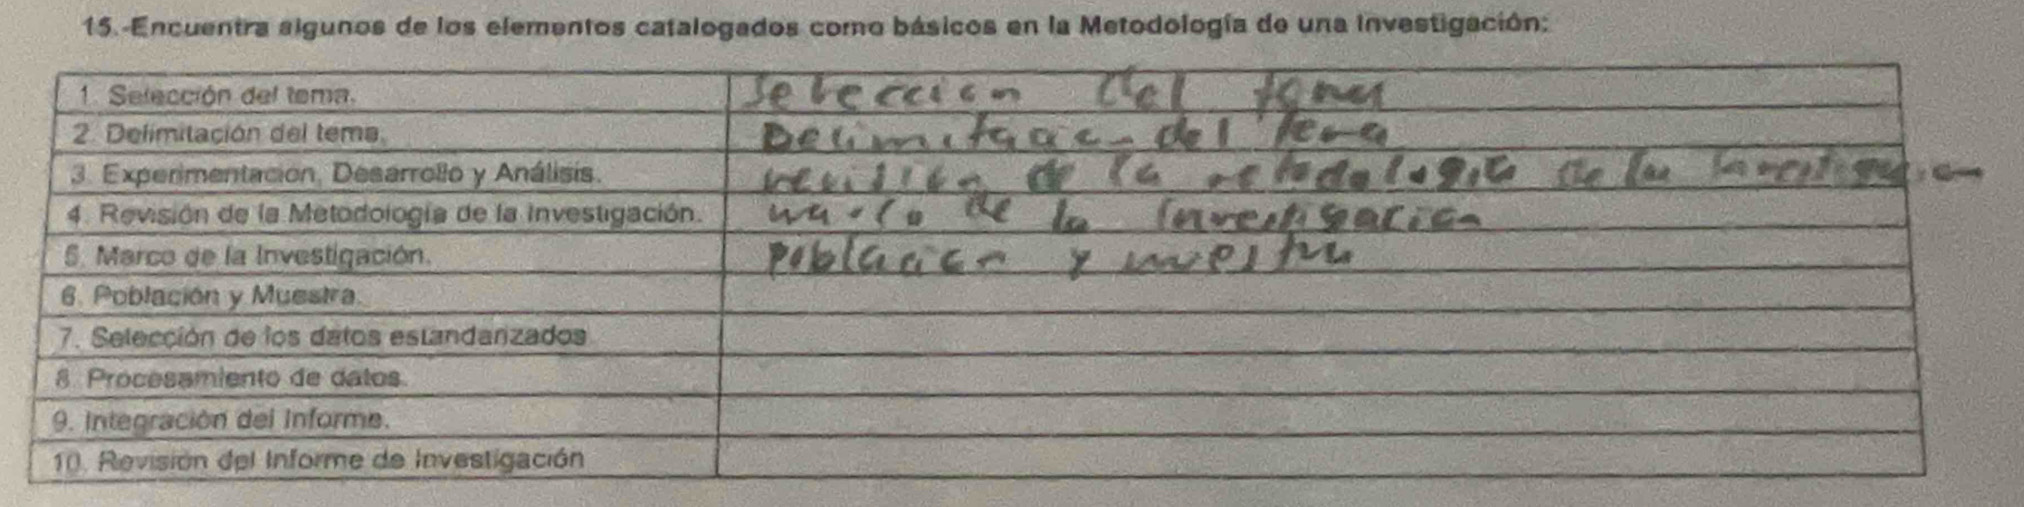 15.-Encuentra algunos de los elementos catalogados como básicos en la Metodología de una Investigación:
1. Selección del tema. Seleccion del tema
2. Delimitación del tema. Delimitacion del tema
3. Experimentación, Desarrollo y Análisis. revision de la metodologia de la investigacion
4. Revisión de la Metodología de la Investigación. marco de la investigacion
5. Marco de la Investigación. poblacion y muestra
6. Población y Muestra.
7. Selección de los datos estandarizados
8. Procesamiento de datos.
9. Integración del Informe.
10. Revisión del Informe de Investigación